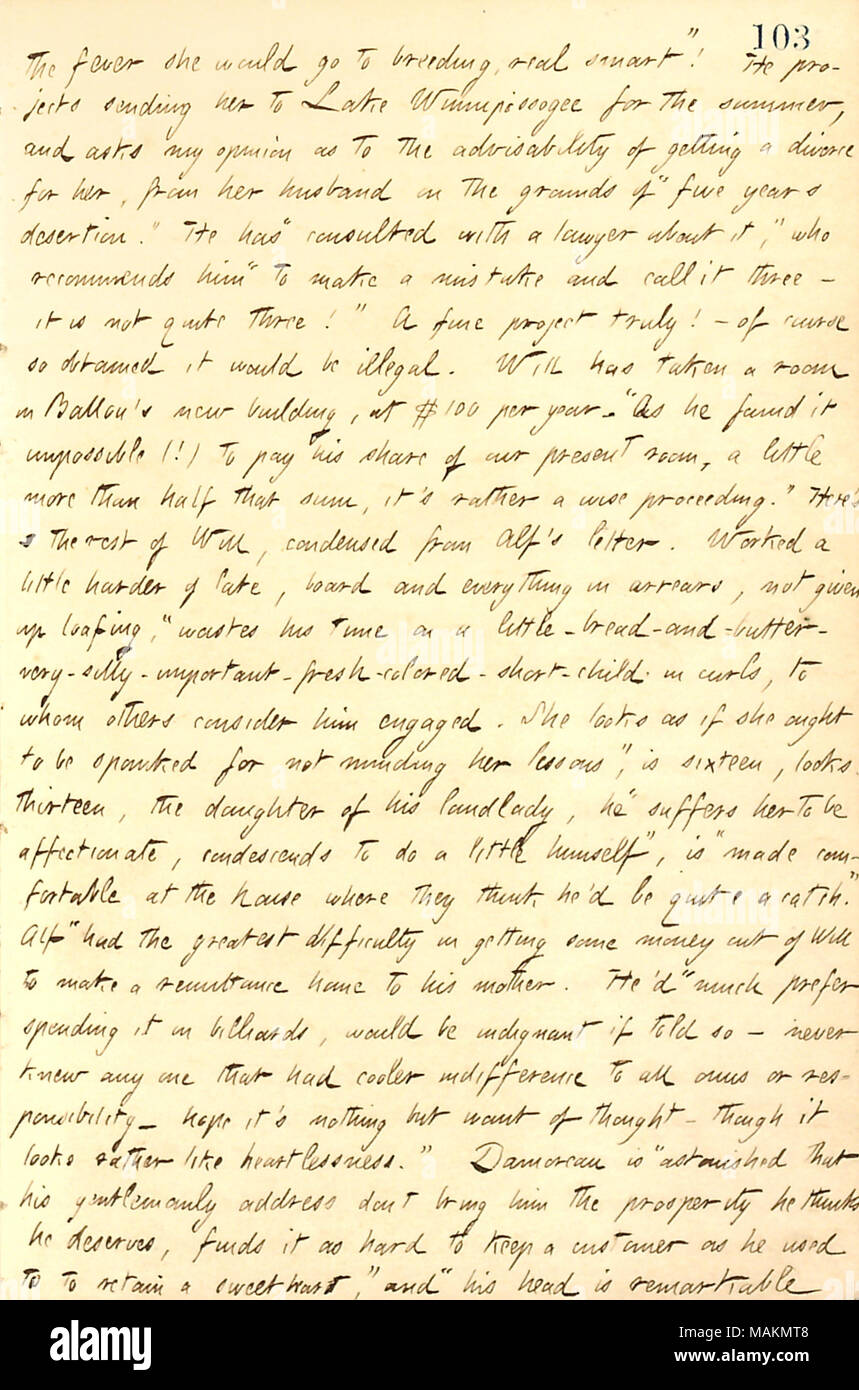 103
the fever she would go to breeding, real smart"! He pro-
jects sending her to Lake Winnipossogee for the summer,
and asks my opinion as to the advisability of getting a divorce
for her, from her husband on the grounds of "five years
desertion." He has "consulted with a lawyer about it," who
recommends him "to make a mistake and call it three —
it is not quite three!" A fine project truly! — of course
so obtained it would be illegal. Will has taken a room
in Ballou's new building, at $100 per year. "As he found it
impossible (!) to pay his share of our present room, a little
more than half that sum, it's rather a wise proceeding." Here's
the rest of Will, condensed from Alf's letter. Worked a
little harder of late, board and everything in arrears, not given
up loafing, "wastes his time on a little-bread-and-butter-
very-silly-important-fresh-colored-short-child in curls, to
whom others consider him engaged. She looks as if she ought
to be spanked for not minding her lessons", is sixteen, looks
thirteen, the daughter of his landlady, he "suffers her to be
affectionate, condescends to do a little himself", is "made com-
fortable at the house where they think he'd be quite a catch."
Alf "had the greatest difficulty in getting some money out of Will
to make a remittance home to his mother. He'd "much prefer
spending it on billiards, would be indignant if told so — never
knew any one that had cooler indifference to all onus or res-
ponsibility — hope it's nothing but want of thought — though it
looks rather like heartlessness." Damoreau is "astonished that
his gentlemanly address don't bring him the prosperity he thinks
he deserves, finds it as hard to keep a customer as he used
to to retain a sweetheart," and "his head is remarkable
alamy
Image ID: MAKMT8
www.alamy.com